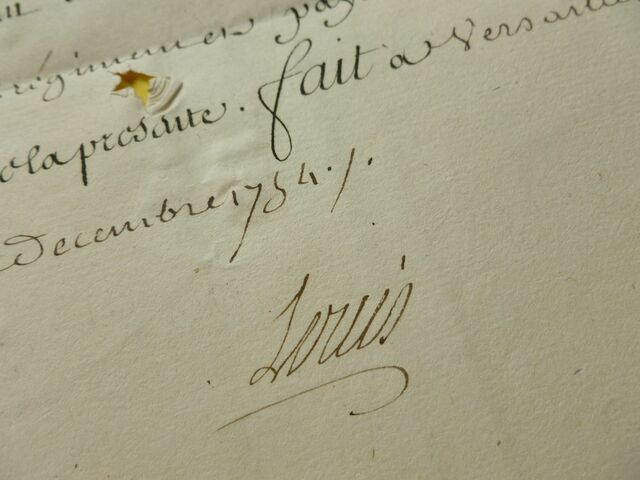 régimens
dela prosante. fait a Versailles
Decembre 1754./.
Louis